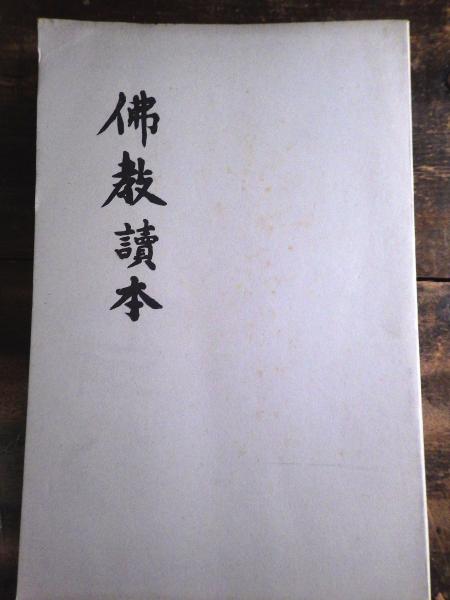 佛教讀本